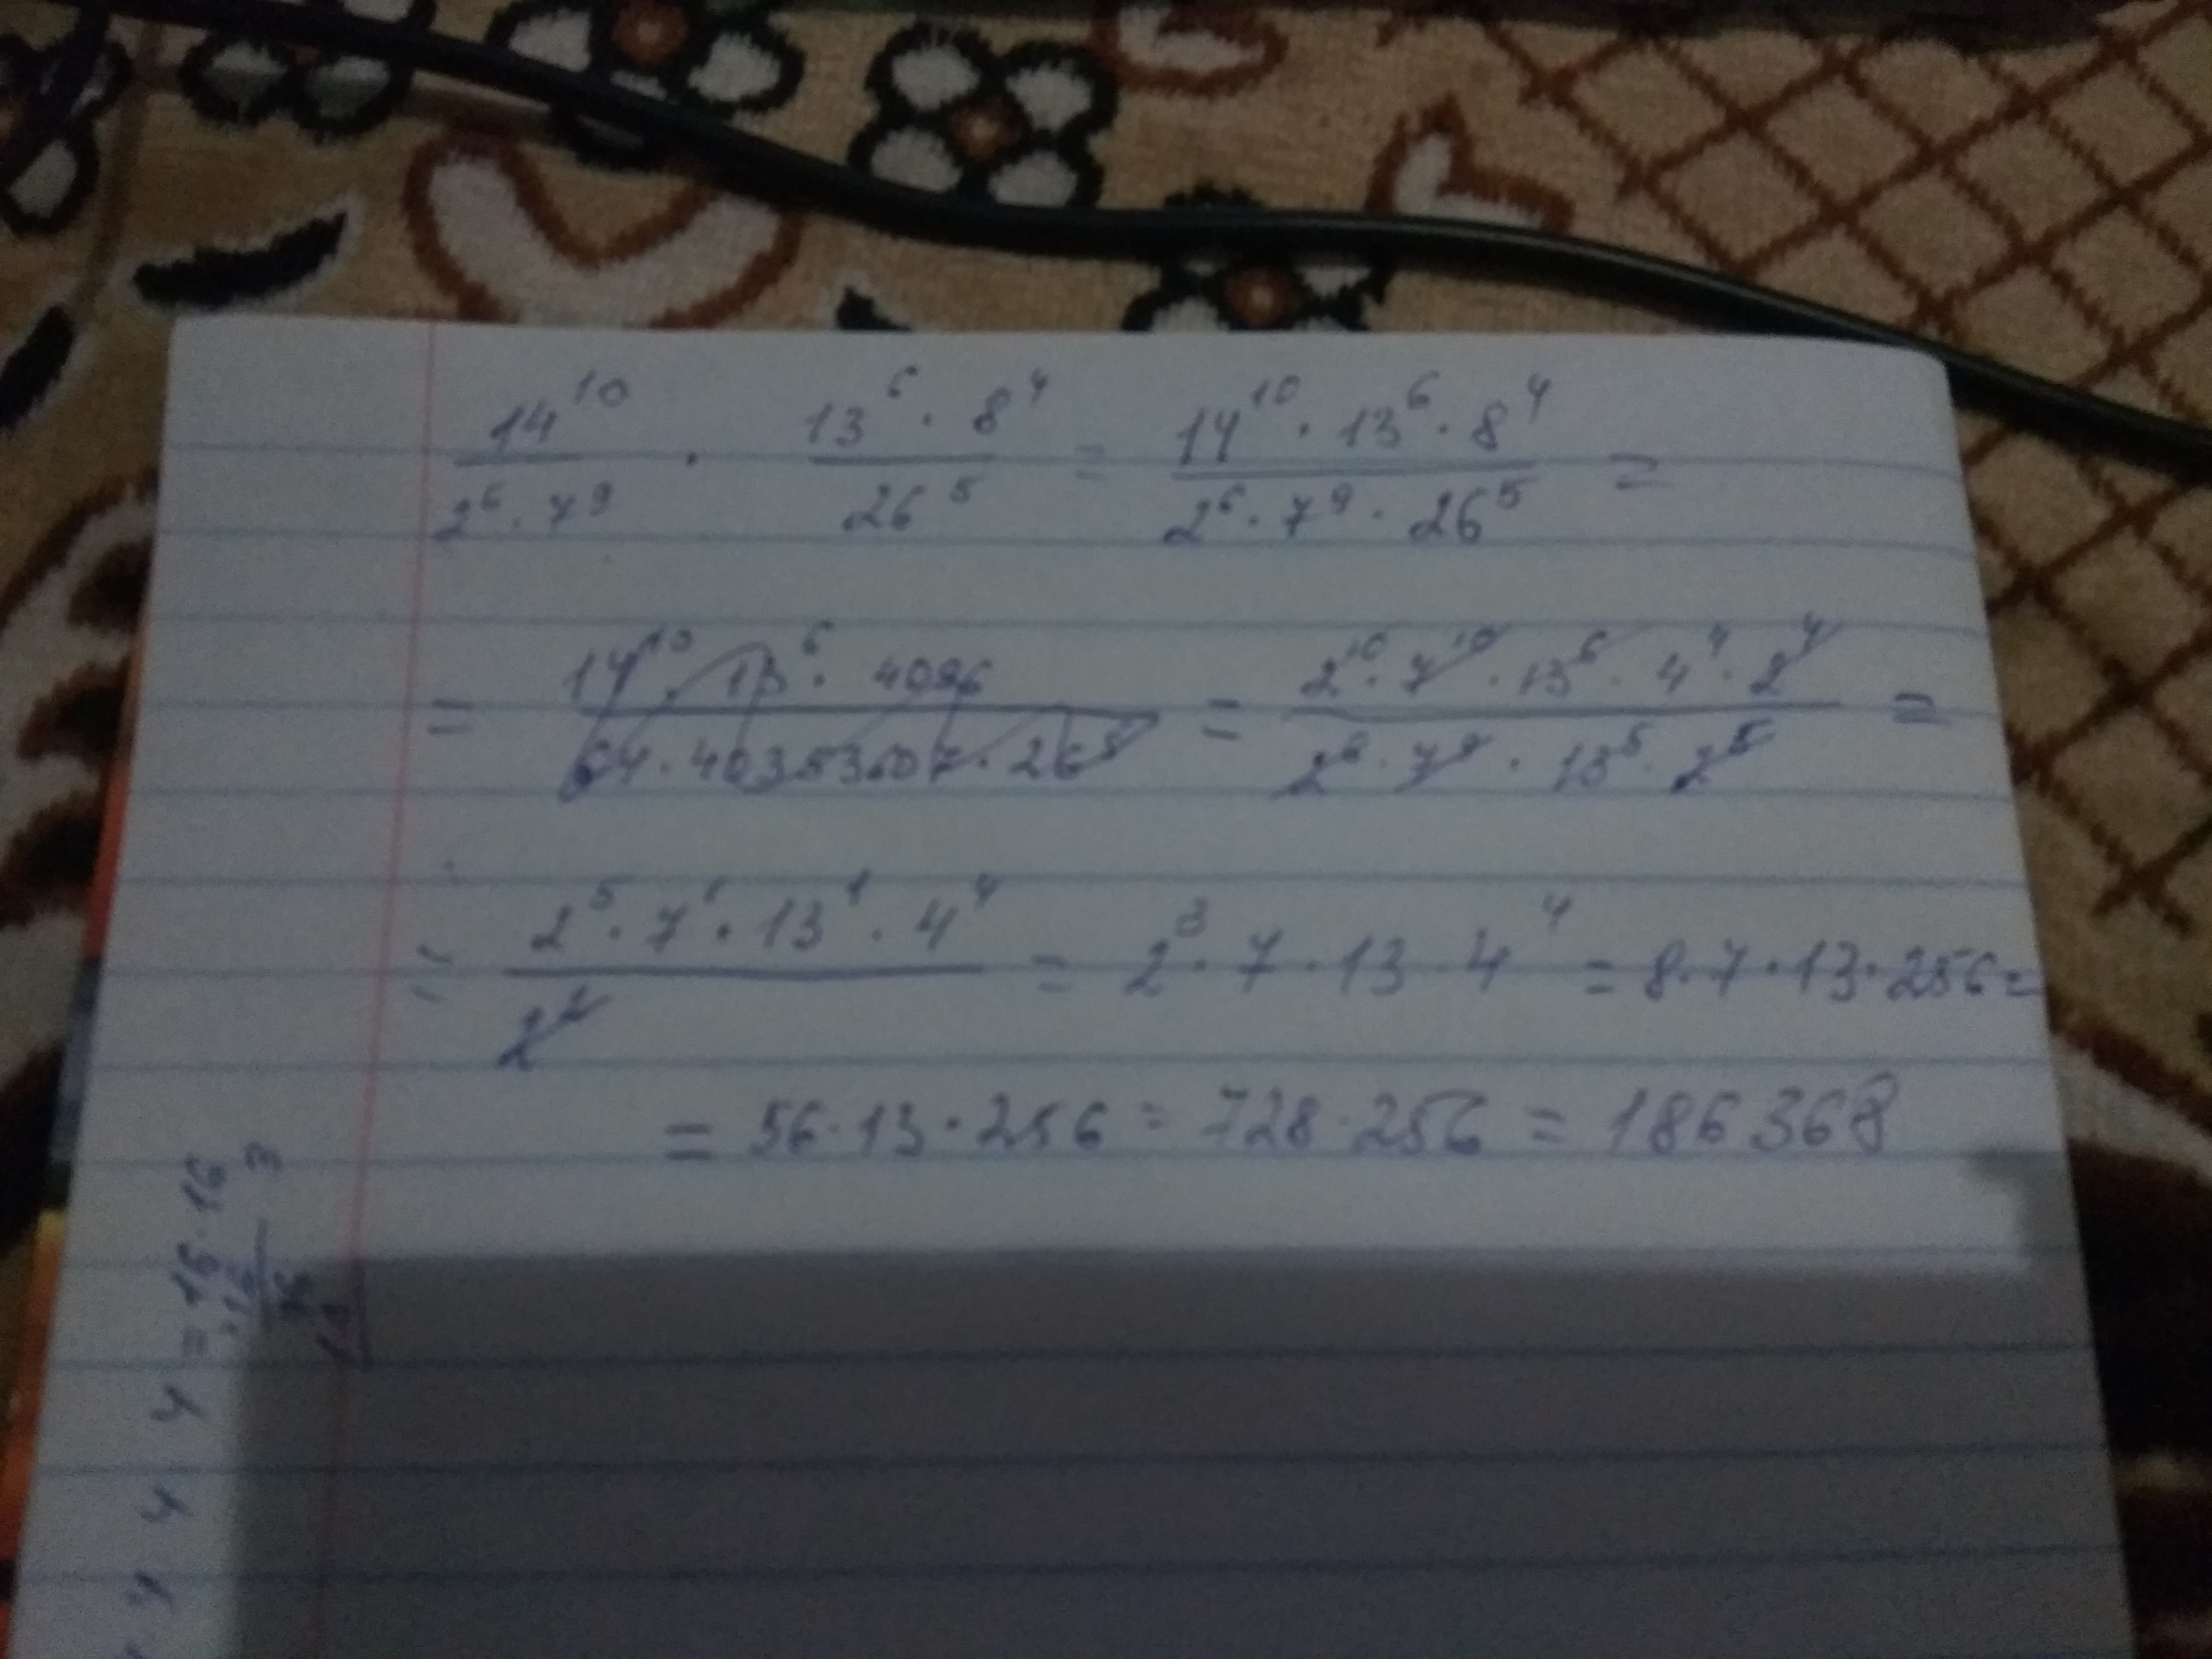 14^10 / (2^6 · 7^9) · (13^6 · 8^4) / 26^5 = (14^10 · 13^6 · 8^4) / (2^6 · 7^9 · 26^5) =
= (14^10 · 13^6 · 4096) / (64 · 40353607 · 26^5) = (2^10 · 7^10 · 13^6 · 4^4 · 2^4) / (2^6 · 7^9 · 13^5 · 2^5) =
= (2^5 · 7^1 · 13^1 · 4^4) / 2^2 = 2^3 · 7 · 13 · 4^4 = 8 · 7 · 13 · 256 =
= 56 · 13 · 256 = 728 · 256 = 186368
4 4 4 = 16 · 16